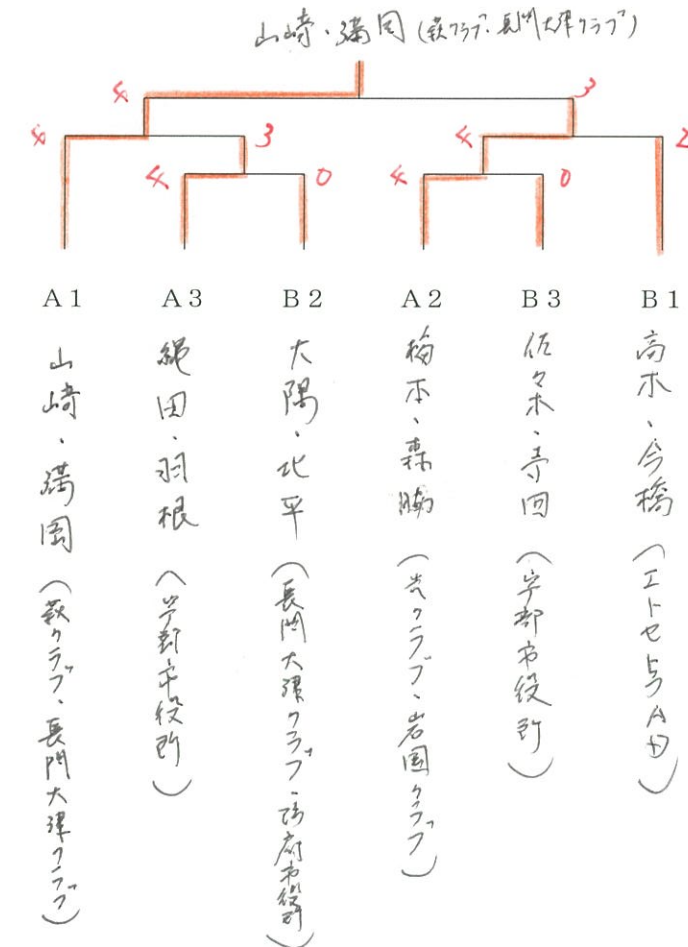 山崎・満岡(萩クラブ・長門大津クラブ)
4 3
4 3 4 2
4 0 4 0
A1 A3 B2 A2 B3 B1
山崎、満岡(萩クラブ、長門大津クラブ)
縄田、羽根(宇部市役所)
大隅、北平(長門大津クラブ、防府市役所)
梅本、森脇(光クラブ、岩国クラブ)
佐々木、寺田(宇部市役所)
高木、今橋